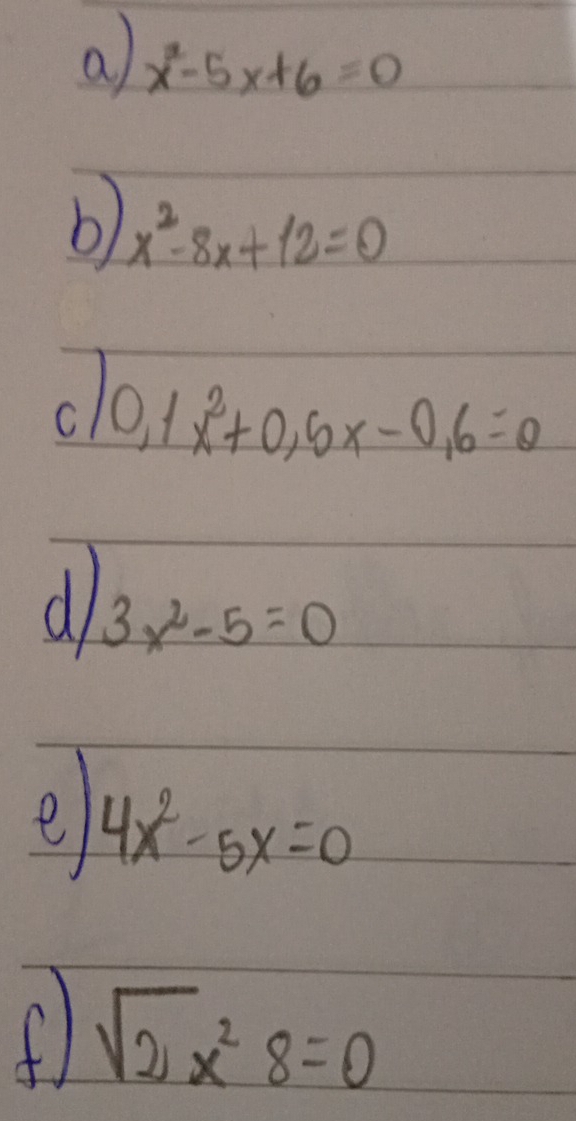 a) x²-5x+6=0
b) x²-8x+12=0
c) 0,1x²+0,5x-0,6=0
d) 3x²-5=0
e) 4x²-5x=0
f) √2 x² 8=0